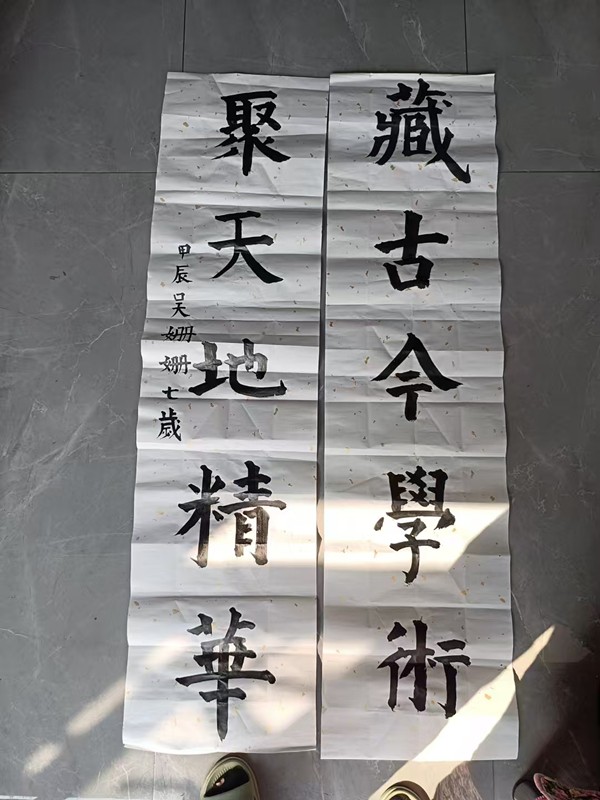 藏古今學術
聚天地精華
甲辰吴姗姗七歲